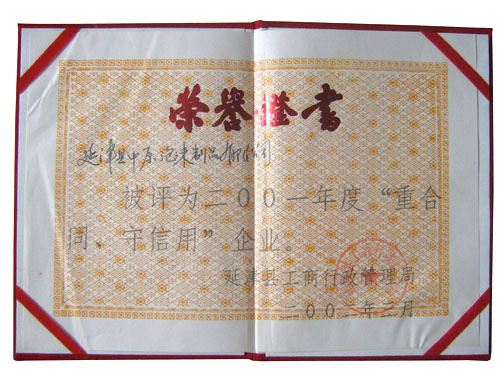 荣誉證書
延津县中原泡沫制品有限公司
被评为二〇〇一年度“重合
同、守信用”企业。
延津县工商行政管理局
二〇〇二年三月